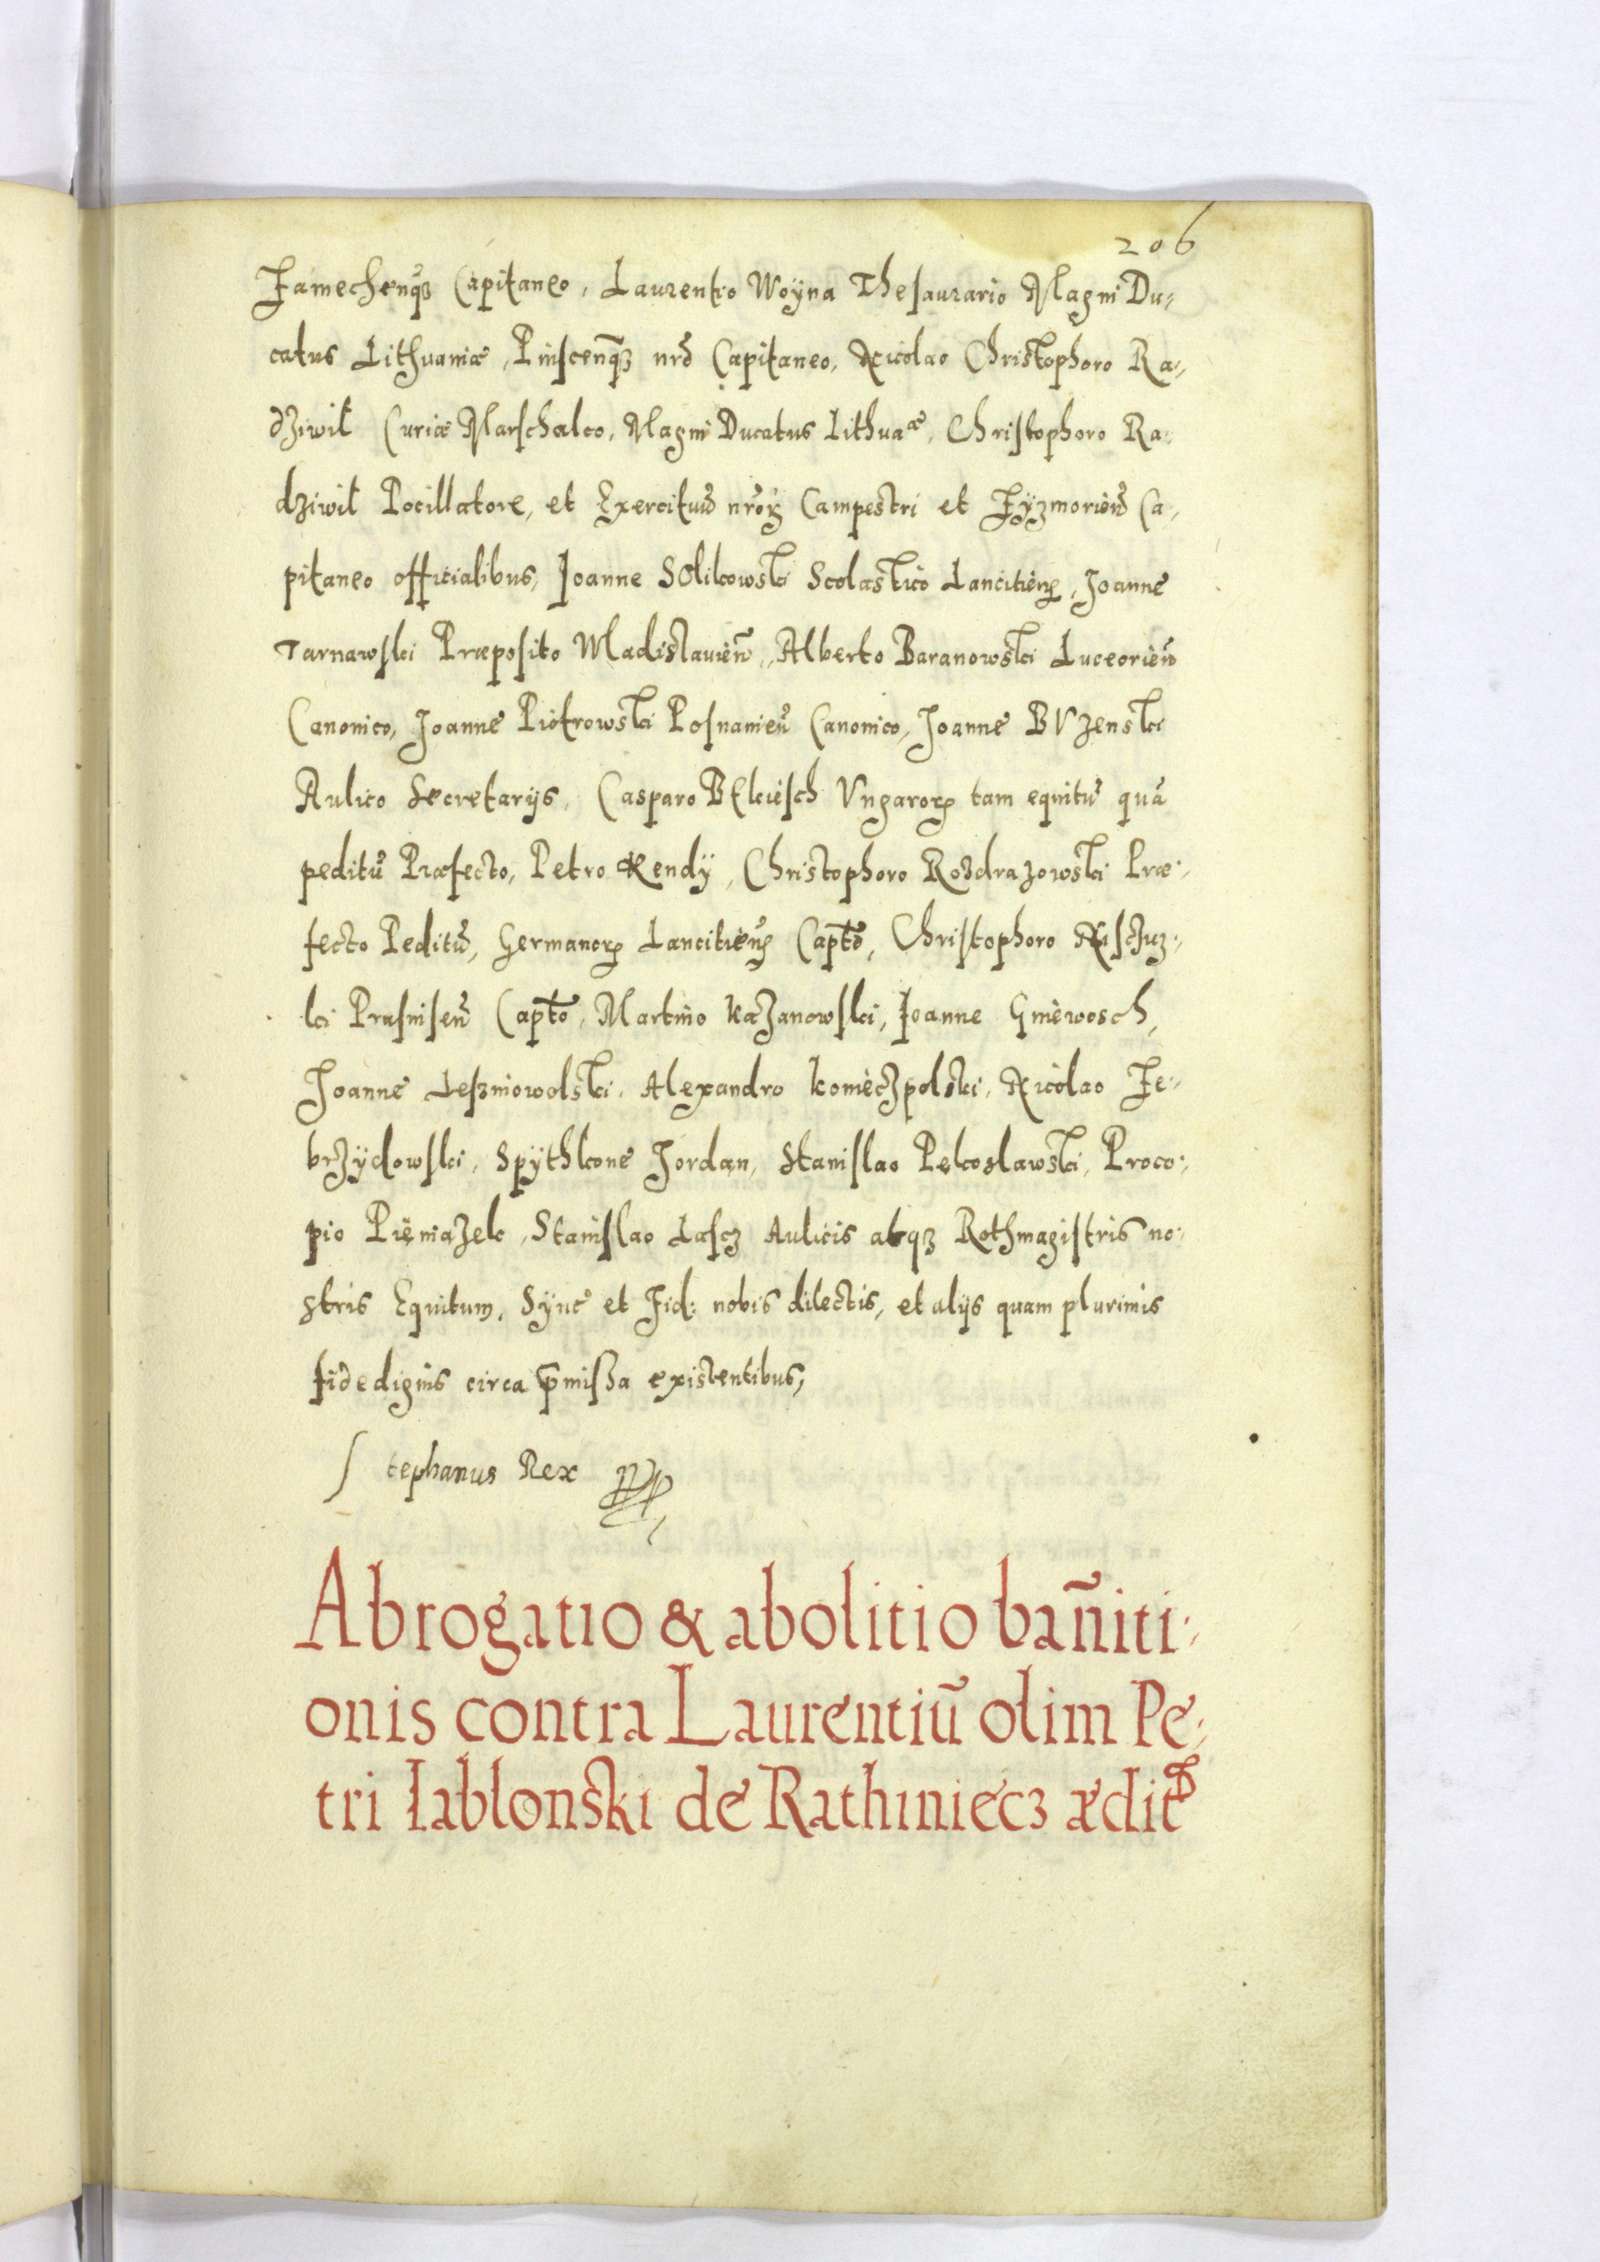 206
Zamechenq̃ꝫ Capitaneo, Laurentio Woÿna Thesaurario Magni Du-
catus Lithuaniæ, Pinscenq̃ꝫ nrõ Capitaneo, Nicolao Christophoro Ra-
dziwił Curiæ Marschalco, Magni Ducatus Lithuaæ, Christophoro Ra-
dziwił Pocillatore, et Exercituũ nrõꝝ Campestri et Zÿzmorieñ Ca-
pitaneo officialibus, Joanne SOlikowski Scolastico Lancitieñ, Joanne
Tarnawski Præposito Wladislauieñ, Alberto Baranowski Luceorieñ
Canonico, Joanne Piotrowski Posnanieñ Canonico, Joanne BVzenski
Aulico Secretarijs, Casparo BEkiesch Vngaroꝝ tam equitũ quã
peditũ Præfecto, Petro Kendÿ, Christophoro Rozdrazowski Præ-
fecto Peditũ, Germanoꝝ Lancitieñ Captõ, Christophoro Nisczyz-
ki Prasniseñ Captõ, Martino Kazanowski, Joanne Gniewosch,
Joanne Leszniowolski, Alexandro Konieczpolski, Nicolao Ze-
brzÿdowski, Spÿthkone Jordan, Stanislao Pekoslawski, Proco-
pio Pieniazek, Stanislao Lascz Aulicis atqꝫ Rothmagistris no-
stris Equitum, Sÿnc̃ et Fid: nobis dilectis, et alijs quam plurimis
fide dignis circa p̃missa existentibus,
Stephanus Rex
Abrogatio & abolitio bañiti-
onis contra Laurentiũ olim Pe-
tri Iablonski de Rathiniecz ædit